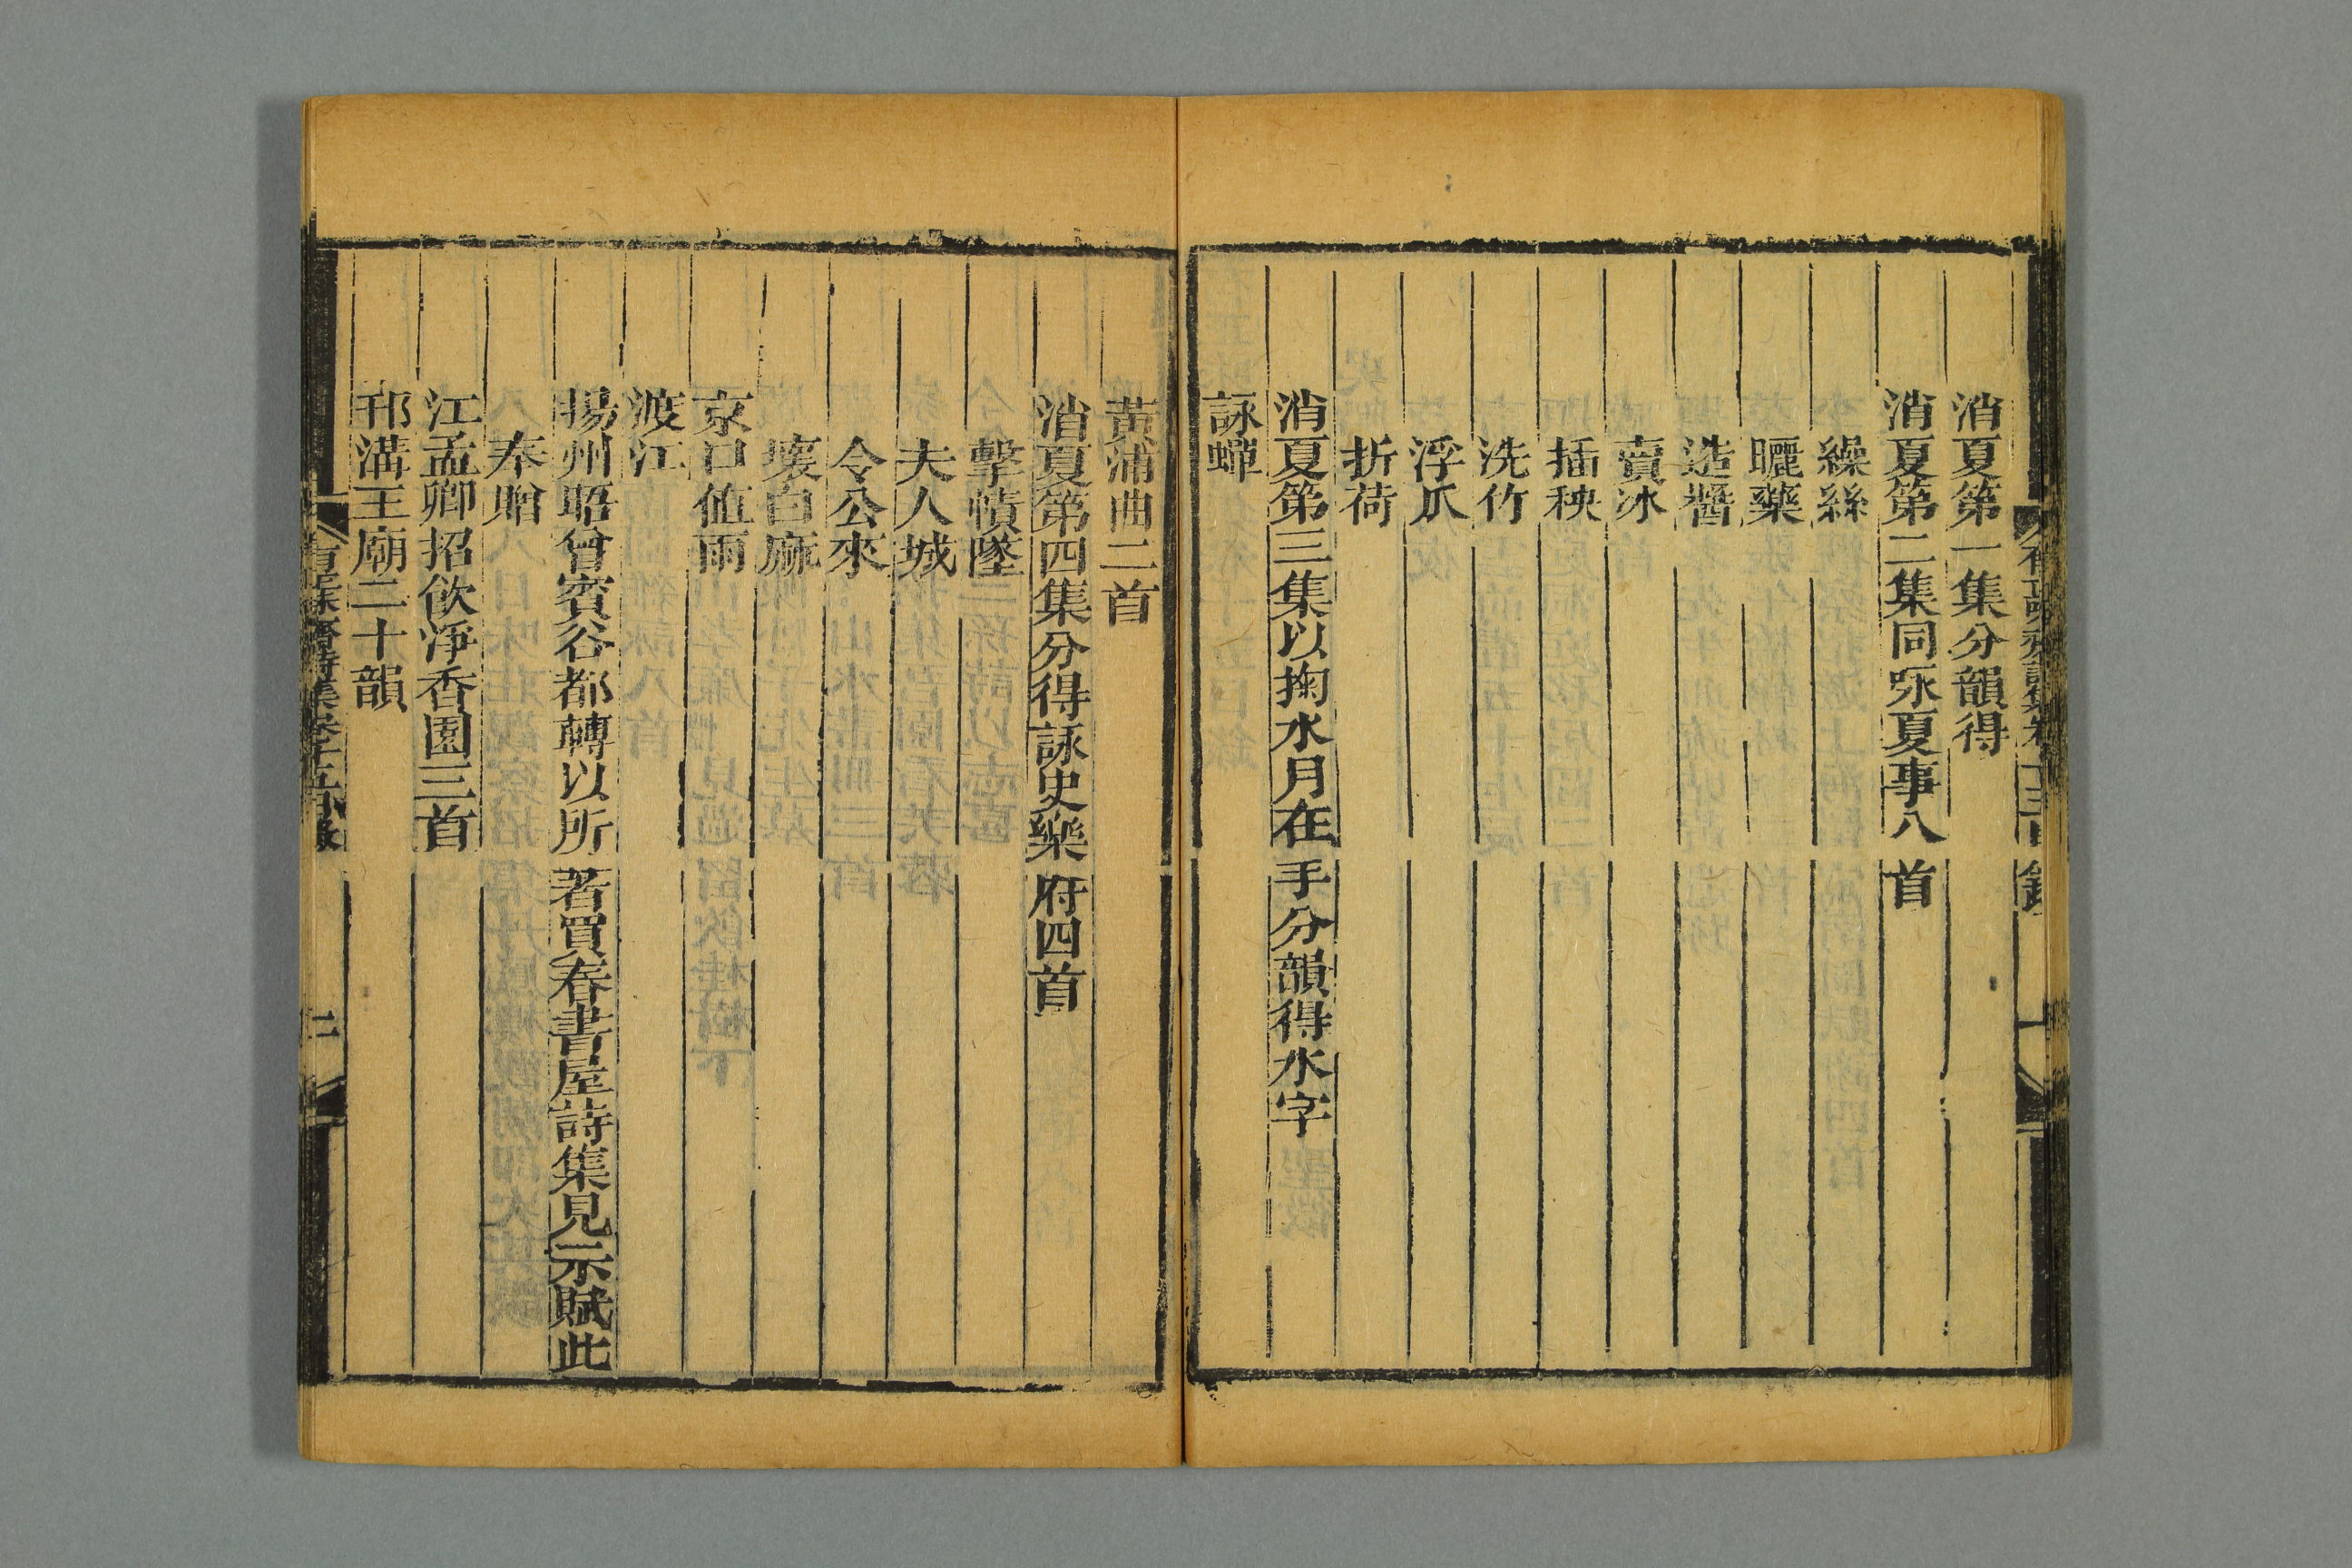 消夏第一集分韻得
消夏第二集同咏夏事八首
繰絲
曬藥
造醬
賣冰
插秧
洗竹
浮瓜
折荷
消夏第三集以掬水月在手分韻得水字
詠蟬
黄浦曲二首
消夏第四集分得詠史樂府四首
擊幘墜
夫人城
令公來
壞白麻
京口値雨
渡江
揚州晤曾賓谷都轉以所著買春書屋詩集見示賦此
奉贈
江孟卿招飲淨香園三首
邗溝王廟二十韻
有正味齋詩集卷十三目錄
二